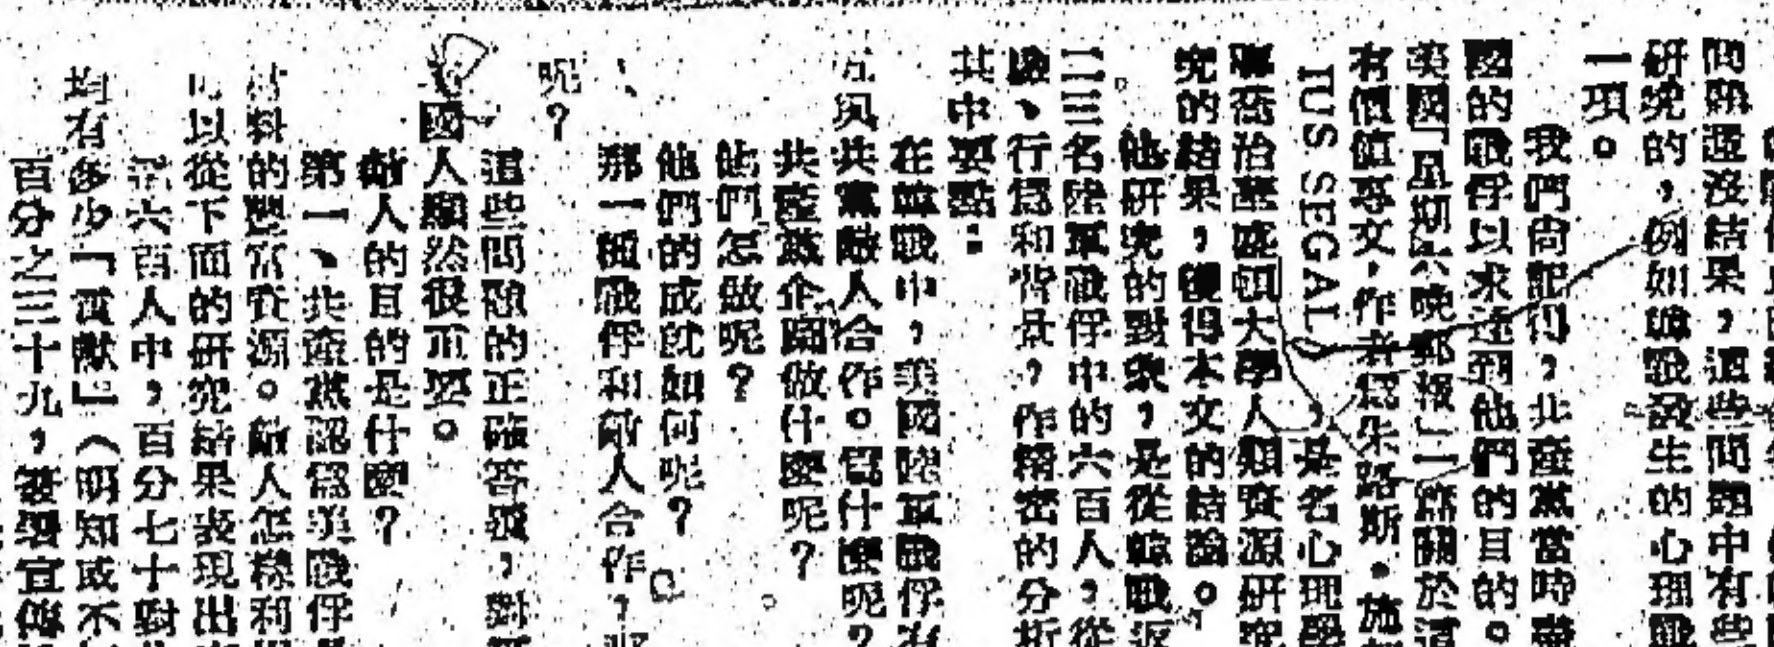 問題還沒結果,這些問題中有些
研究的,例如韓戰發生的心理戰
一項。
我們尚記得,共產黨當時
國的戰俘以求達到他們的目的。
美國「星期六晚郵報」一篇關於這
有價值專文,作者爲朱路斯.施
IUS SEGAL),是名心理學
喬治華盛頓大學人類資源研究
究的結果,獲得本文的結論。
他研究的對象,是從韓戰返
三名陸軍戰俘中的六百人,從
行爲和背景,作精密的分析
其中要點:
在韓戰中,美國陸軍戰俘有
共黨敵人合作。爲什麼呢?
共產黨企圖做什麼呢?
他們怎做呢?
他們的成就如何呢?
那一種戰俘和敵人合作?
呢?
這些問題的正確答覆,對
國人顯然很重要。
敵人的目的是什麼?
第一、共產黨認爲美戰俘
材料的豐富資源。敵人怎樣利
以從下面的研究結果表現出
六百人中,百分七十對
均有多少「貢獻」(明知或不
百分之三十九,簽署宣傳